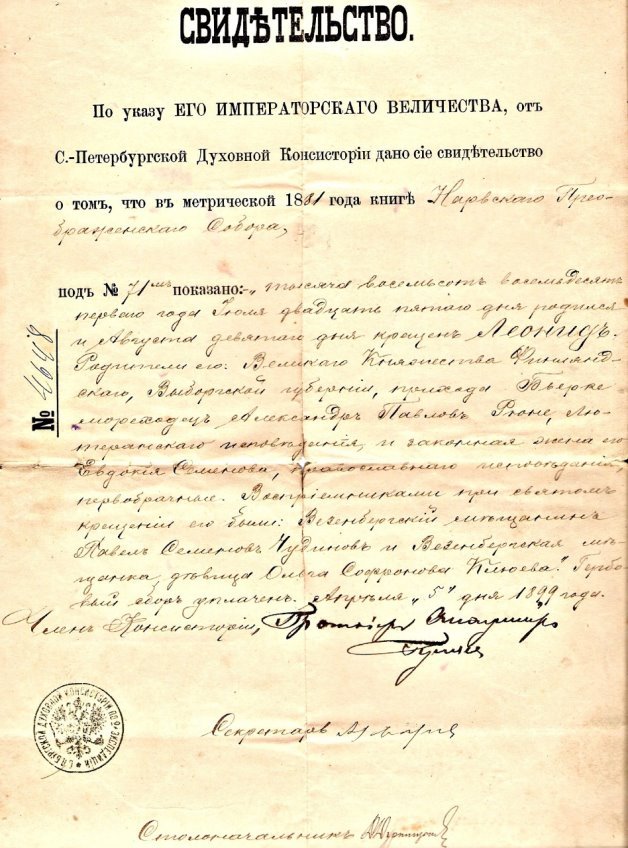 СВИДѢТЕЛЬСТВО.
По указу ЕГО ИМПЕРАТОРСКАГО ВЕЛИЧЕСТВА, отъ
С.-Петербургской Духовной Консисторіи дано сіе свидѣтельство
о томъ, что въ метрической 1881 года книгѣ Нарвскаго Прео-
браженскаго Собора,
подъ № 71мъ показано: „тысяча восемьсотъ восемьдесятъ
перваго года Іюля двадцать пятаго дня родился
и Августа девятаго дня крещенъ Леонидъ.
Родители его: Великаго Княжества Финлянд-
скаго, Выборгской губерніи, прихода Бьерке
мореходецъ Александръ Павловъ, Лю-
теранскаго исповѣданія, и законная жена его
Евдокія Семенова, православнаго исповѣданія,
первобрачные. Воспріемниками при святомъ
крещеніи его были: Везенбергскій мѣщанинъ
Павелъ Семеновъ Чудиновъ и Везенбергская мѣ-
щанка, дѣвица Ольга Софронова Клюева." Гербо-
вый сборъ уплаченъ. Апрѣля „5" дня 1899 года.
Членъ Консисторіи, Протоіерей
Секретарь
Столоначальникъ
№ 4698
С.П.БУРГСКОЙ ДУХОВНОЙ КОНСИСТОРІИ ПО ЭКСПЕДИЦІИ